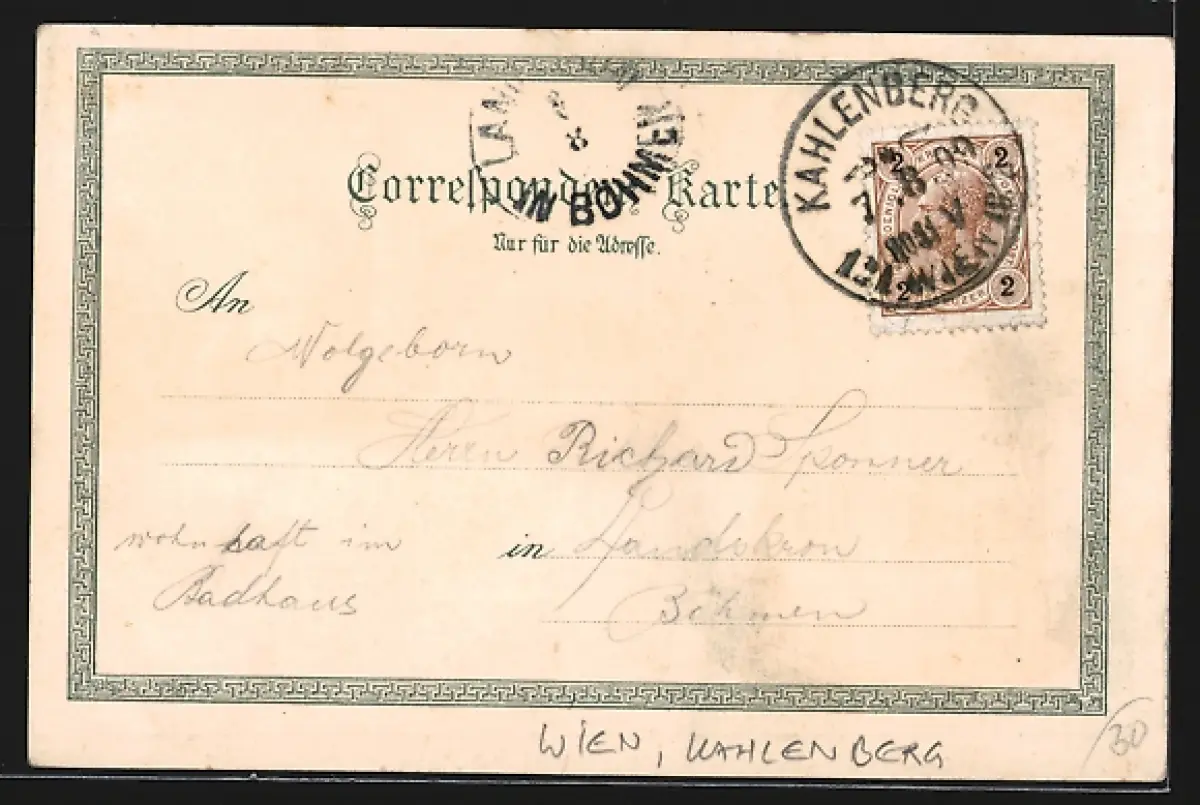 LAN
8
IN BÖHMEN
KAHLENBERG
7 8 99
WIEN
2 2
2 2
Correspondenz-Karte
Nur für die Adresse.
An
Wolgeborn
Herrn Richard Sponner
wohnhaft im in Landskron
Badhaus Böhmen
WIEN, KAHLENBERG
30